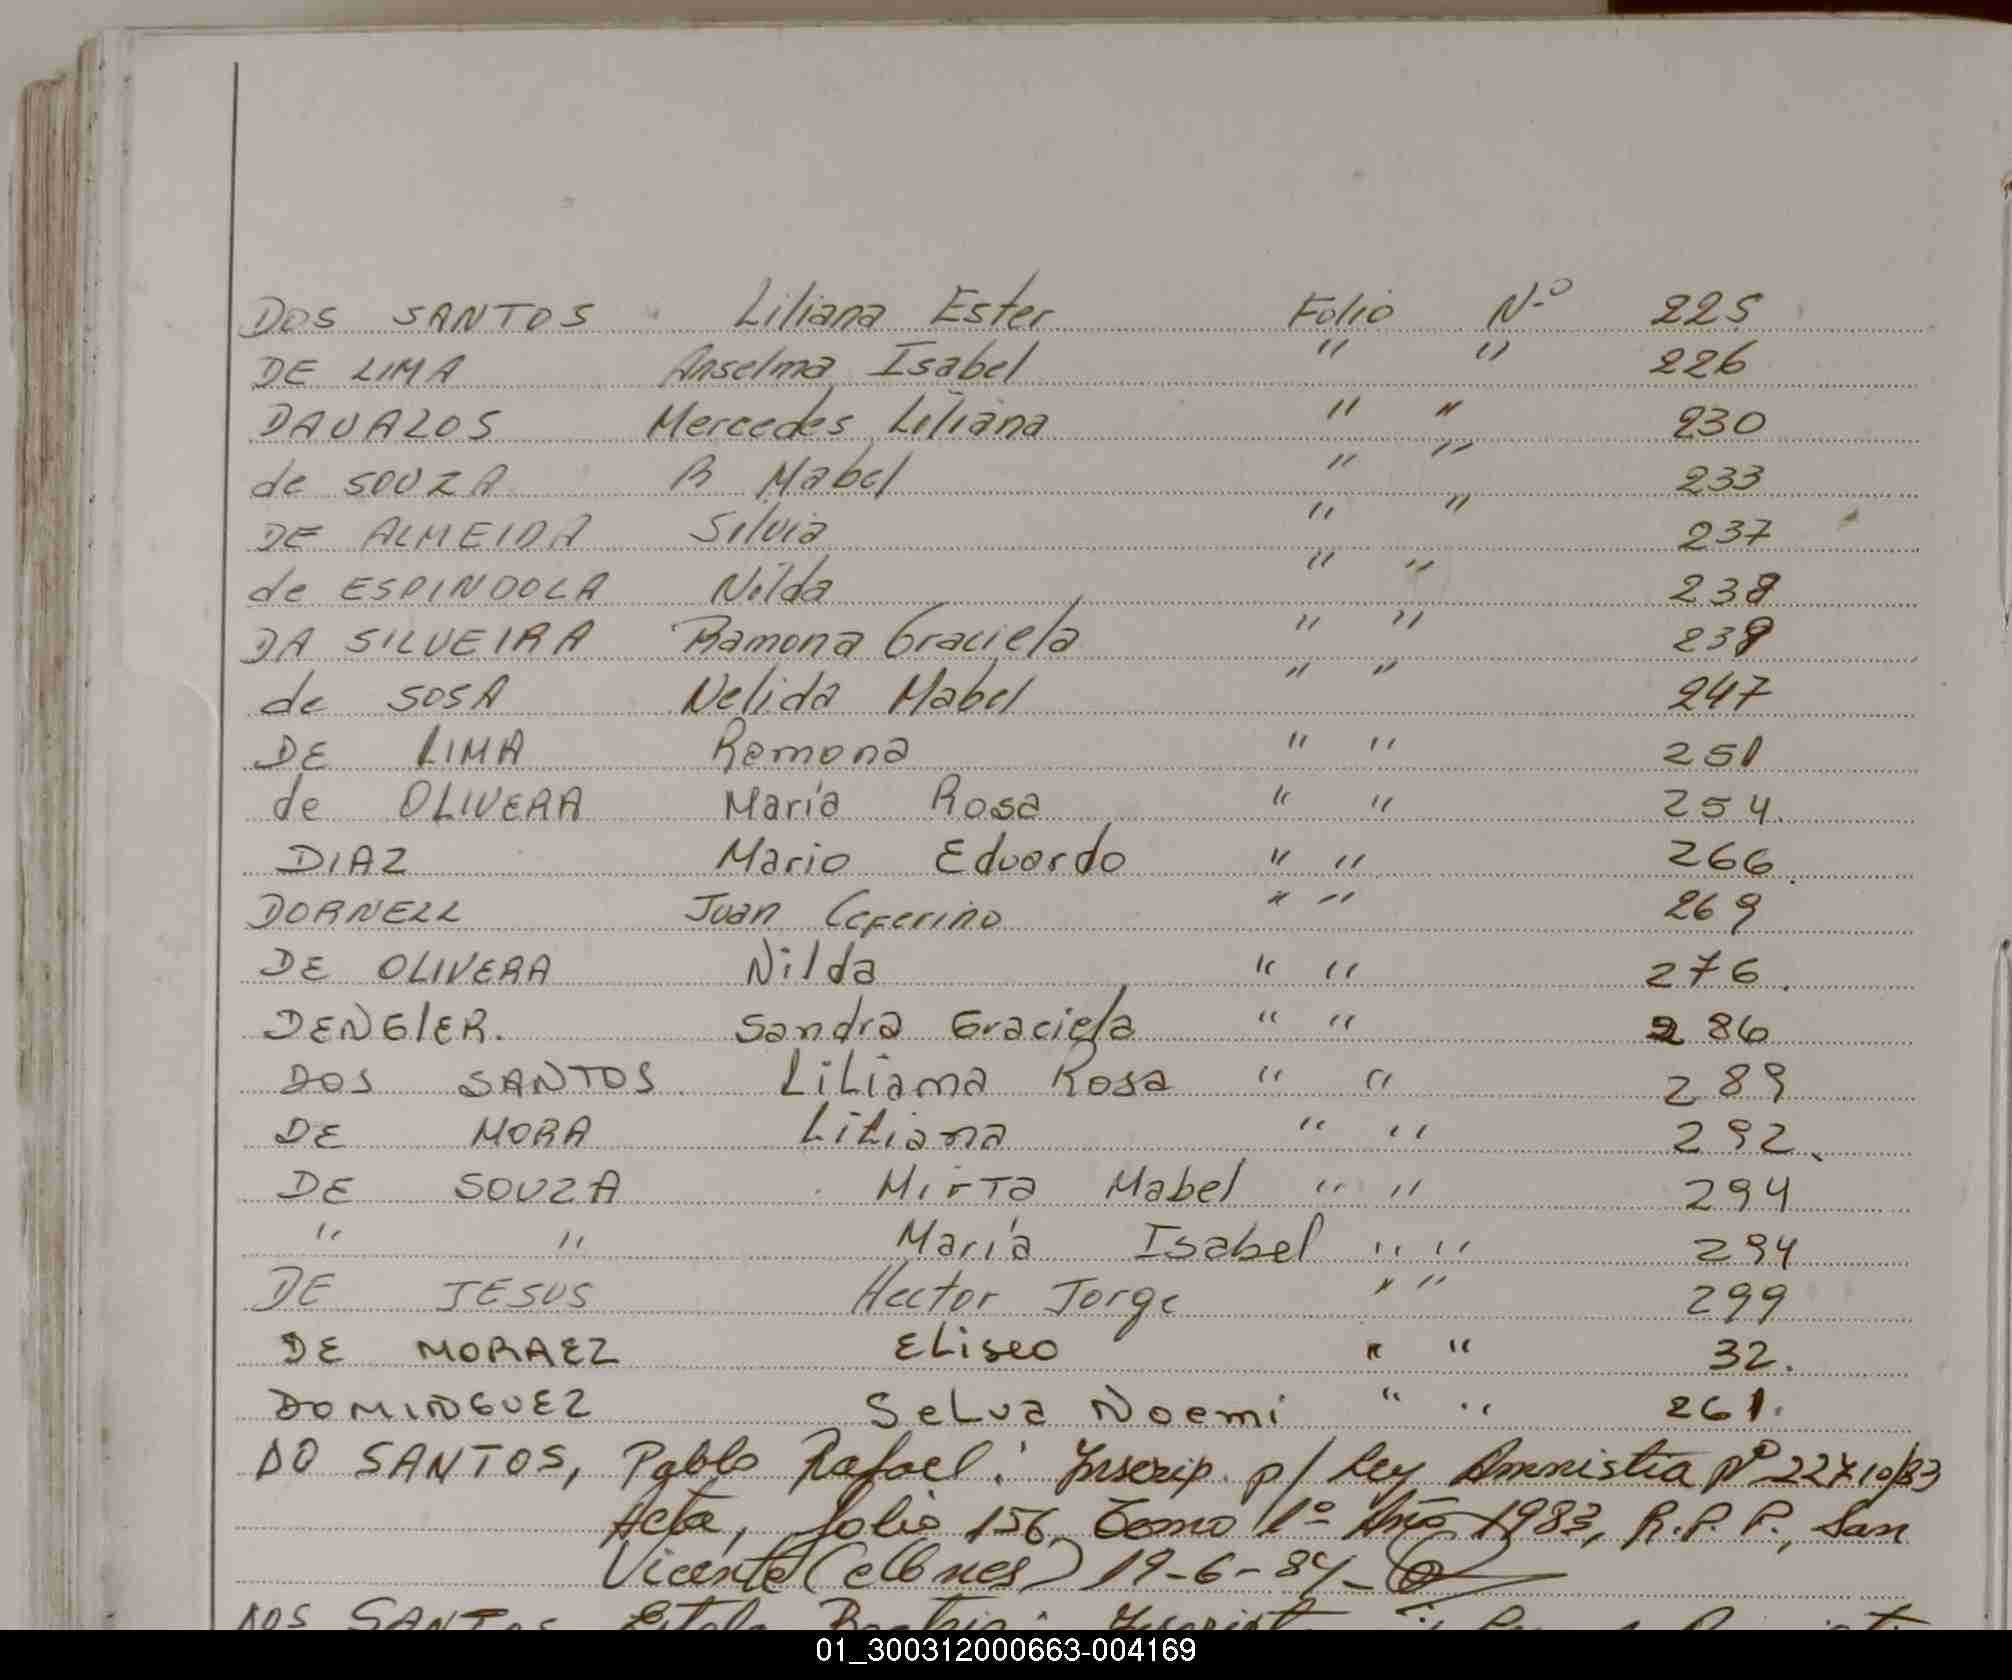 DOS SANTOS Liliana Ester Folio N-º 225
DE LIMA Anselma Isabel " " 226
DAVALOS Mercedes Liliana " " 230
de SOUZA R Mabel " " 233
DE ALMEIDA Silvia " " 237
de ESPINDOLA Nilda " " 238
DA SILVEIRA Ramona Graciela " " 239
de SOSA Nelida Mabel " " 247
DE LIMA Ramona " " 251
de OLIVERA María Rosa " " 254.
DIAZ Mario Eduardo " " 266.
DORNELL Juan Ceferino " " 269
DE OLIVERA Nilda " " 276.
DENGLER. Sandra Graciela " " 286
DOS SANTOS Liliana Rosa " " 289
DE MORA Liliana " " 292.
DE SOUZA Mirta Mabel " " 294
" " María Isabel " " 294
DE JESUS Hector Jorge " " 299
DE MORAEZ Eliseo " " 32.
DOMINGUEZ Selva Noemi " " 261.
DO SANTOS, Pablo Rafael: Inscrip. p/ Ley Amnistia Nº 22710/83
Acta, folio 156, Tomo 1º Año 1983, R.P.P., San
Vicente (Mnes) 19-6-84-
DOS SANTOS
01_300312000663-004169